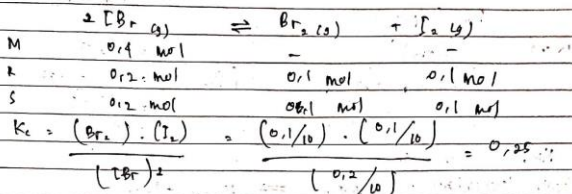 2 IBr (g) ⇌ Br₂ (g) + I₂ (g)
M 0,4 mol - -
R 0,2 mol 0,1 mol 0,1 mol
S 0,2 mol 0,1 mol 0,1 mol
Kc = (Br₂) . (I₂) / (IBr)² = (0,1/10) . (0,1/10) / (0,2/10) = 0,25